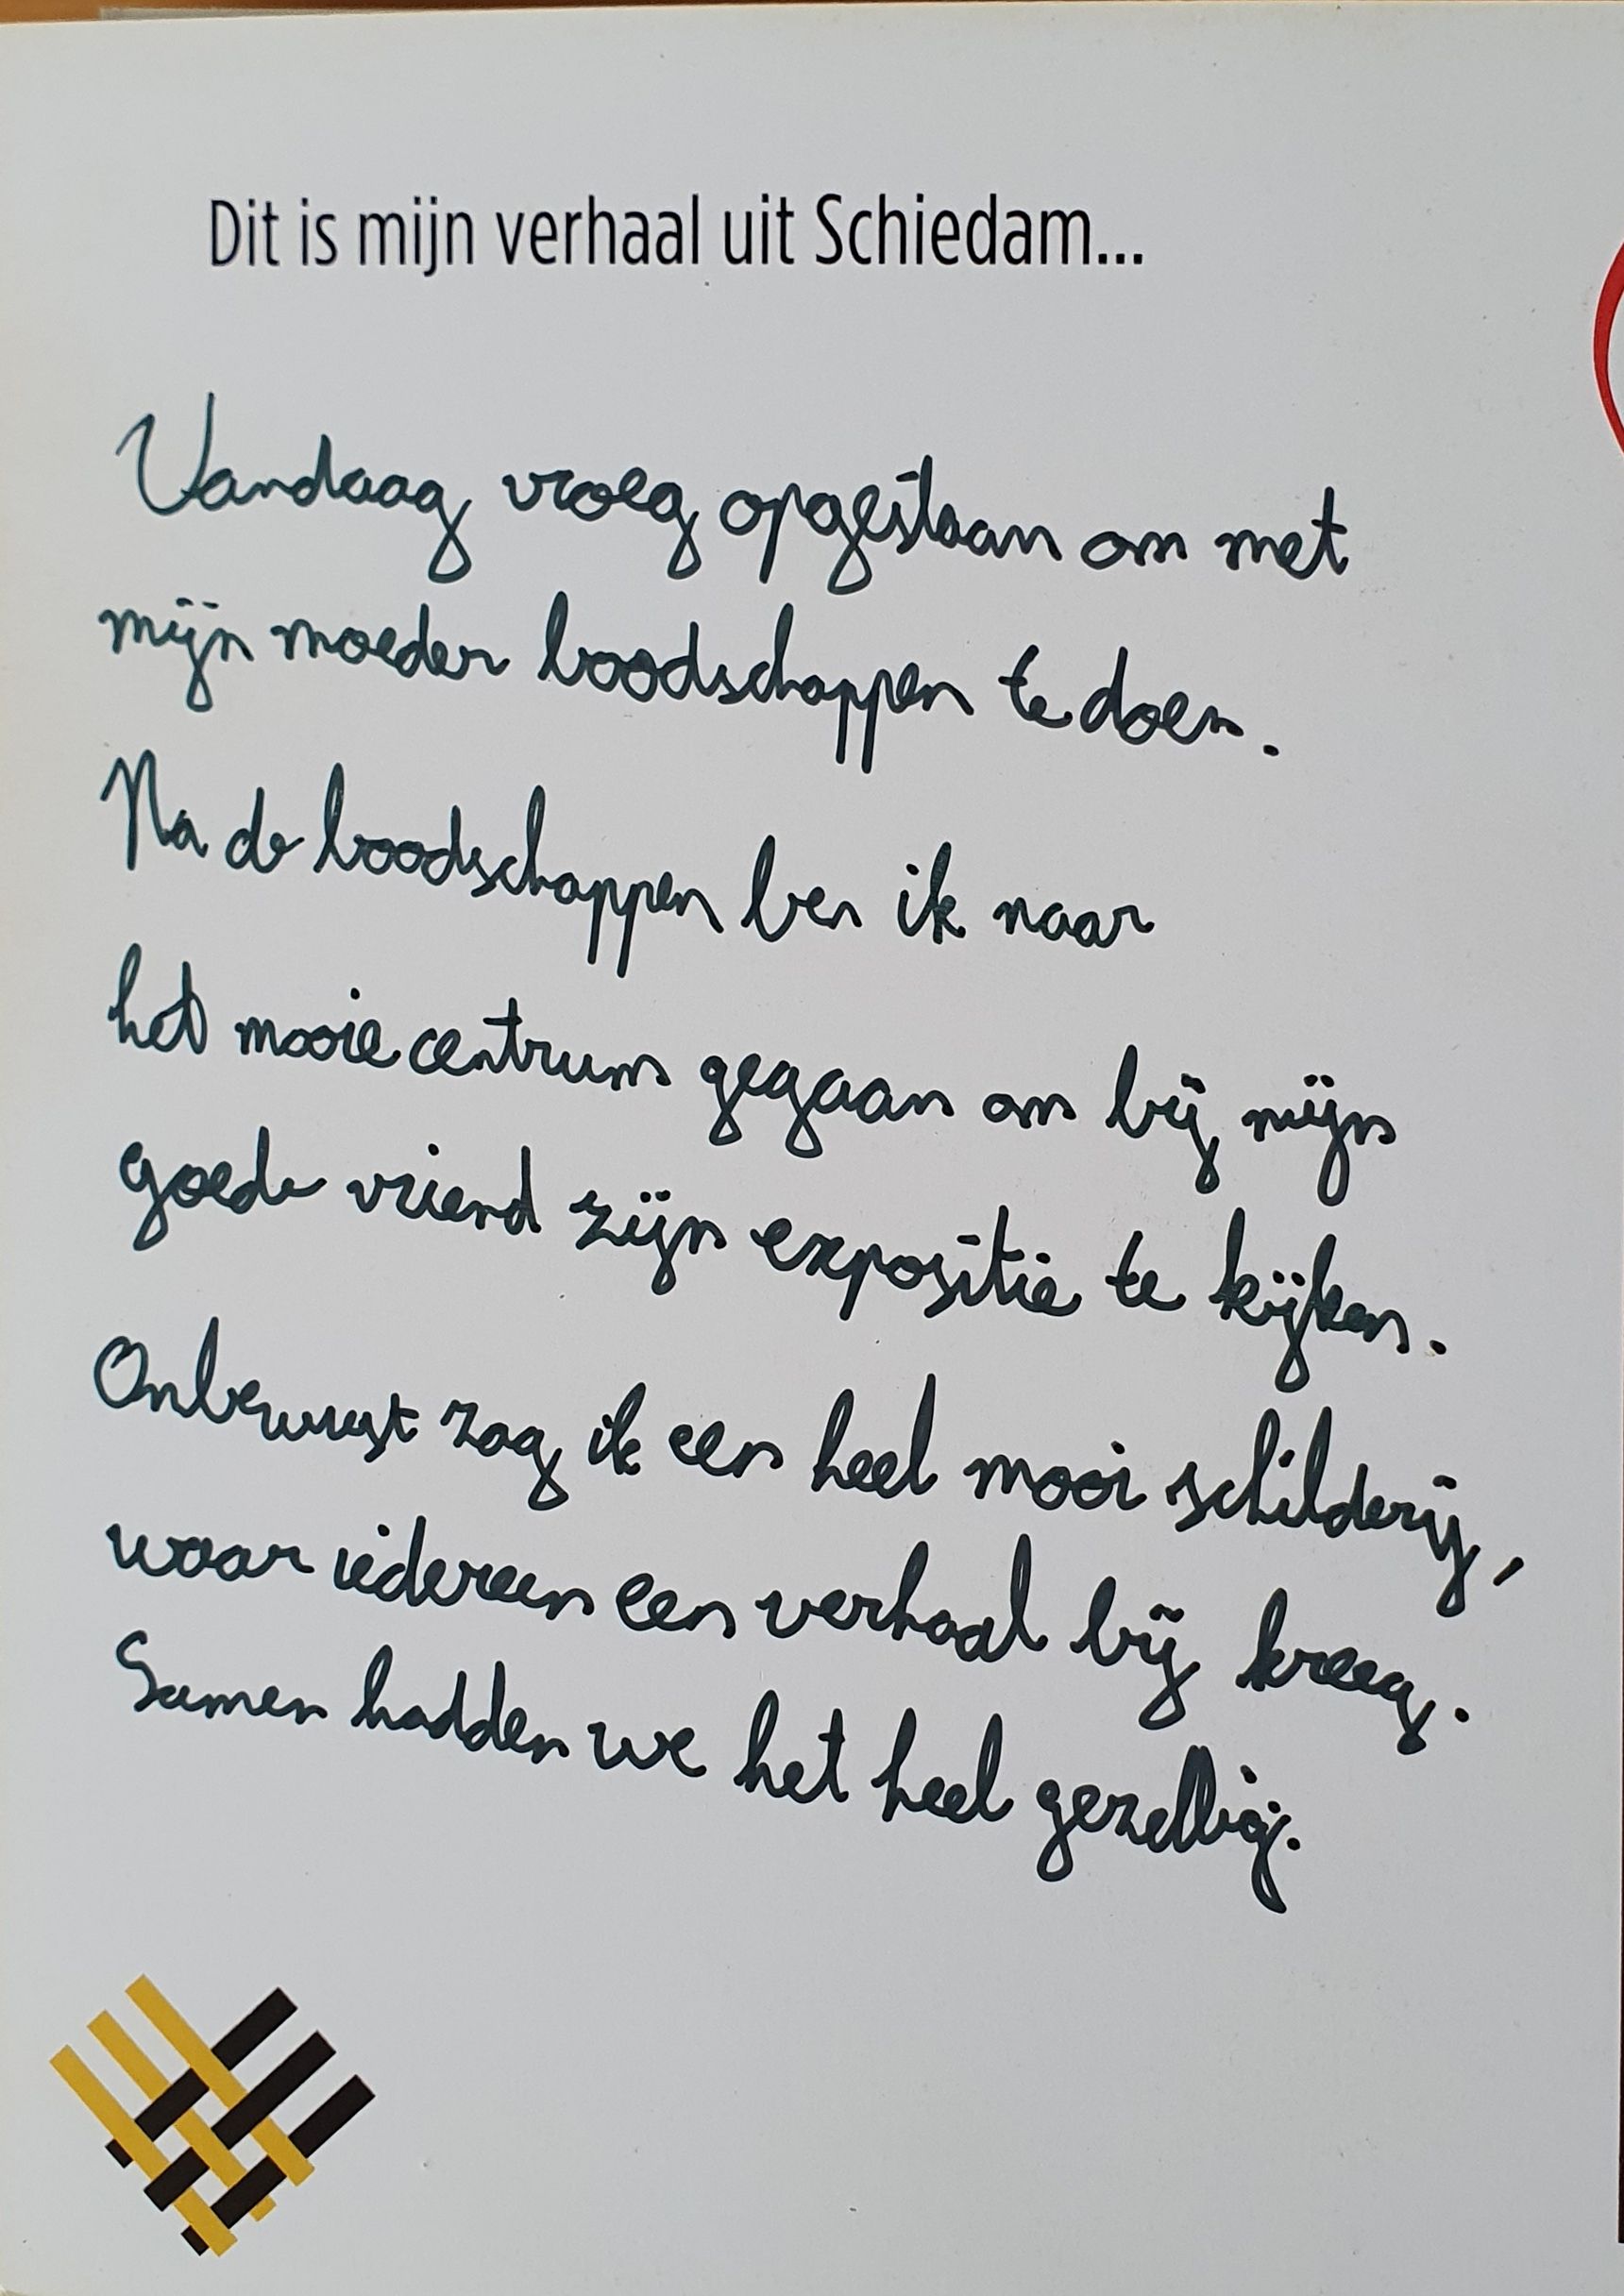 Dit is mijn verhaal uit Schiedam...
Vandaag vroeg opgestaan om met
mijn moeder boodschappen te doen.
Na de boodschappen ben ik naar
het mooie centrum gegaan om bij mijn
goede vriend zijn expositie te kijken.
Onbewust zag ik een heel mooi schilderij,
waar iedereen een verhaal bij kreeg.
Samen hadden we het heel gezellig.